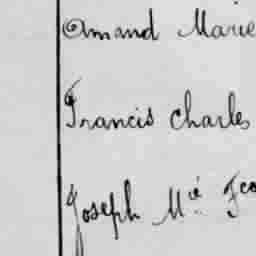 Amand Marie
Francis Charles
Joseph Mie